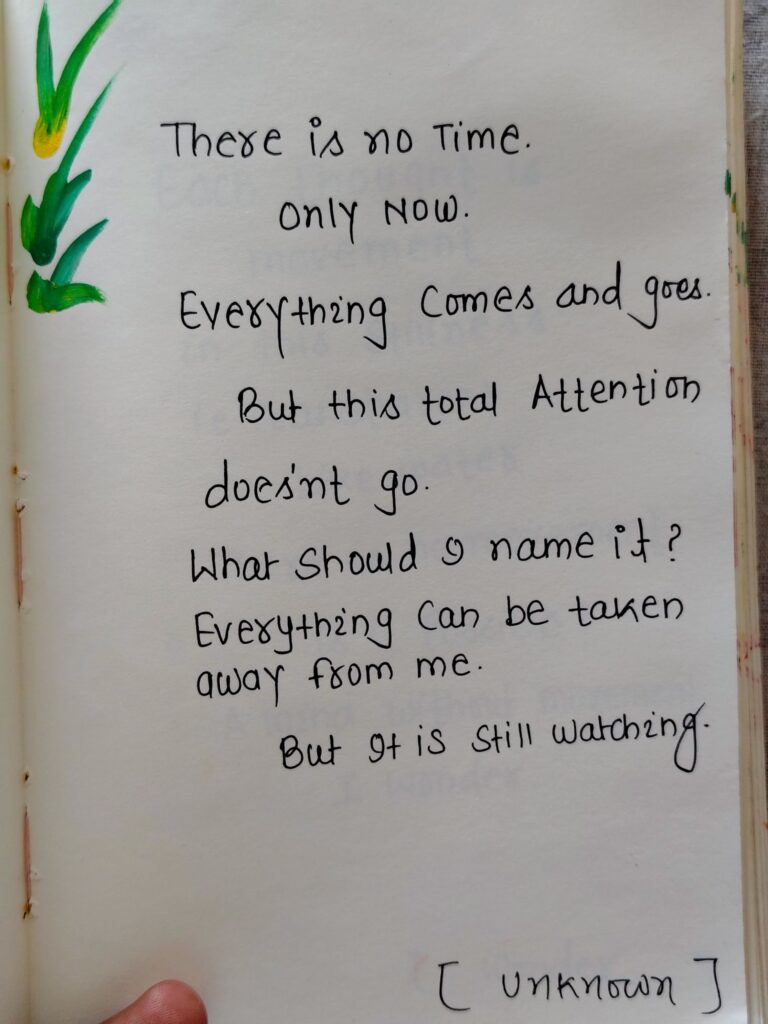 There is no Time.
Only Now.
Everything Comes and goes.
But this total Attention
does'nt go.
What Should I name it?
Everything Can be taken
away from me.
But It is Still watching.
[ Unknown ]